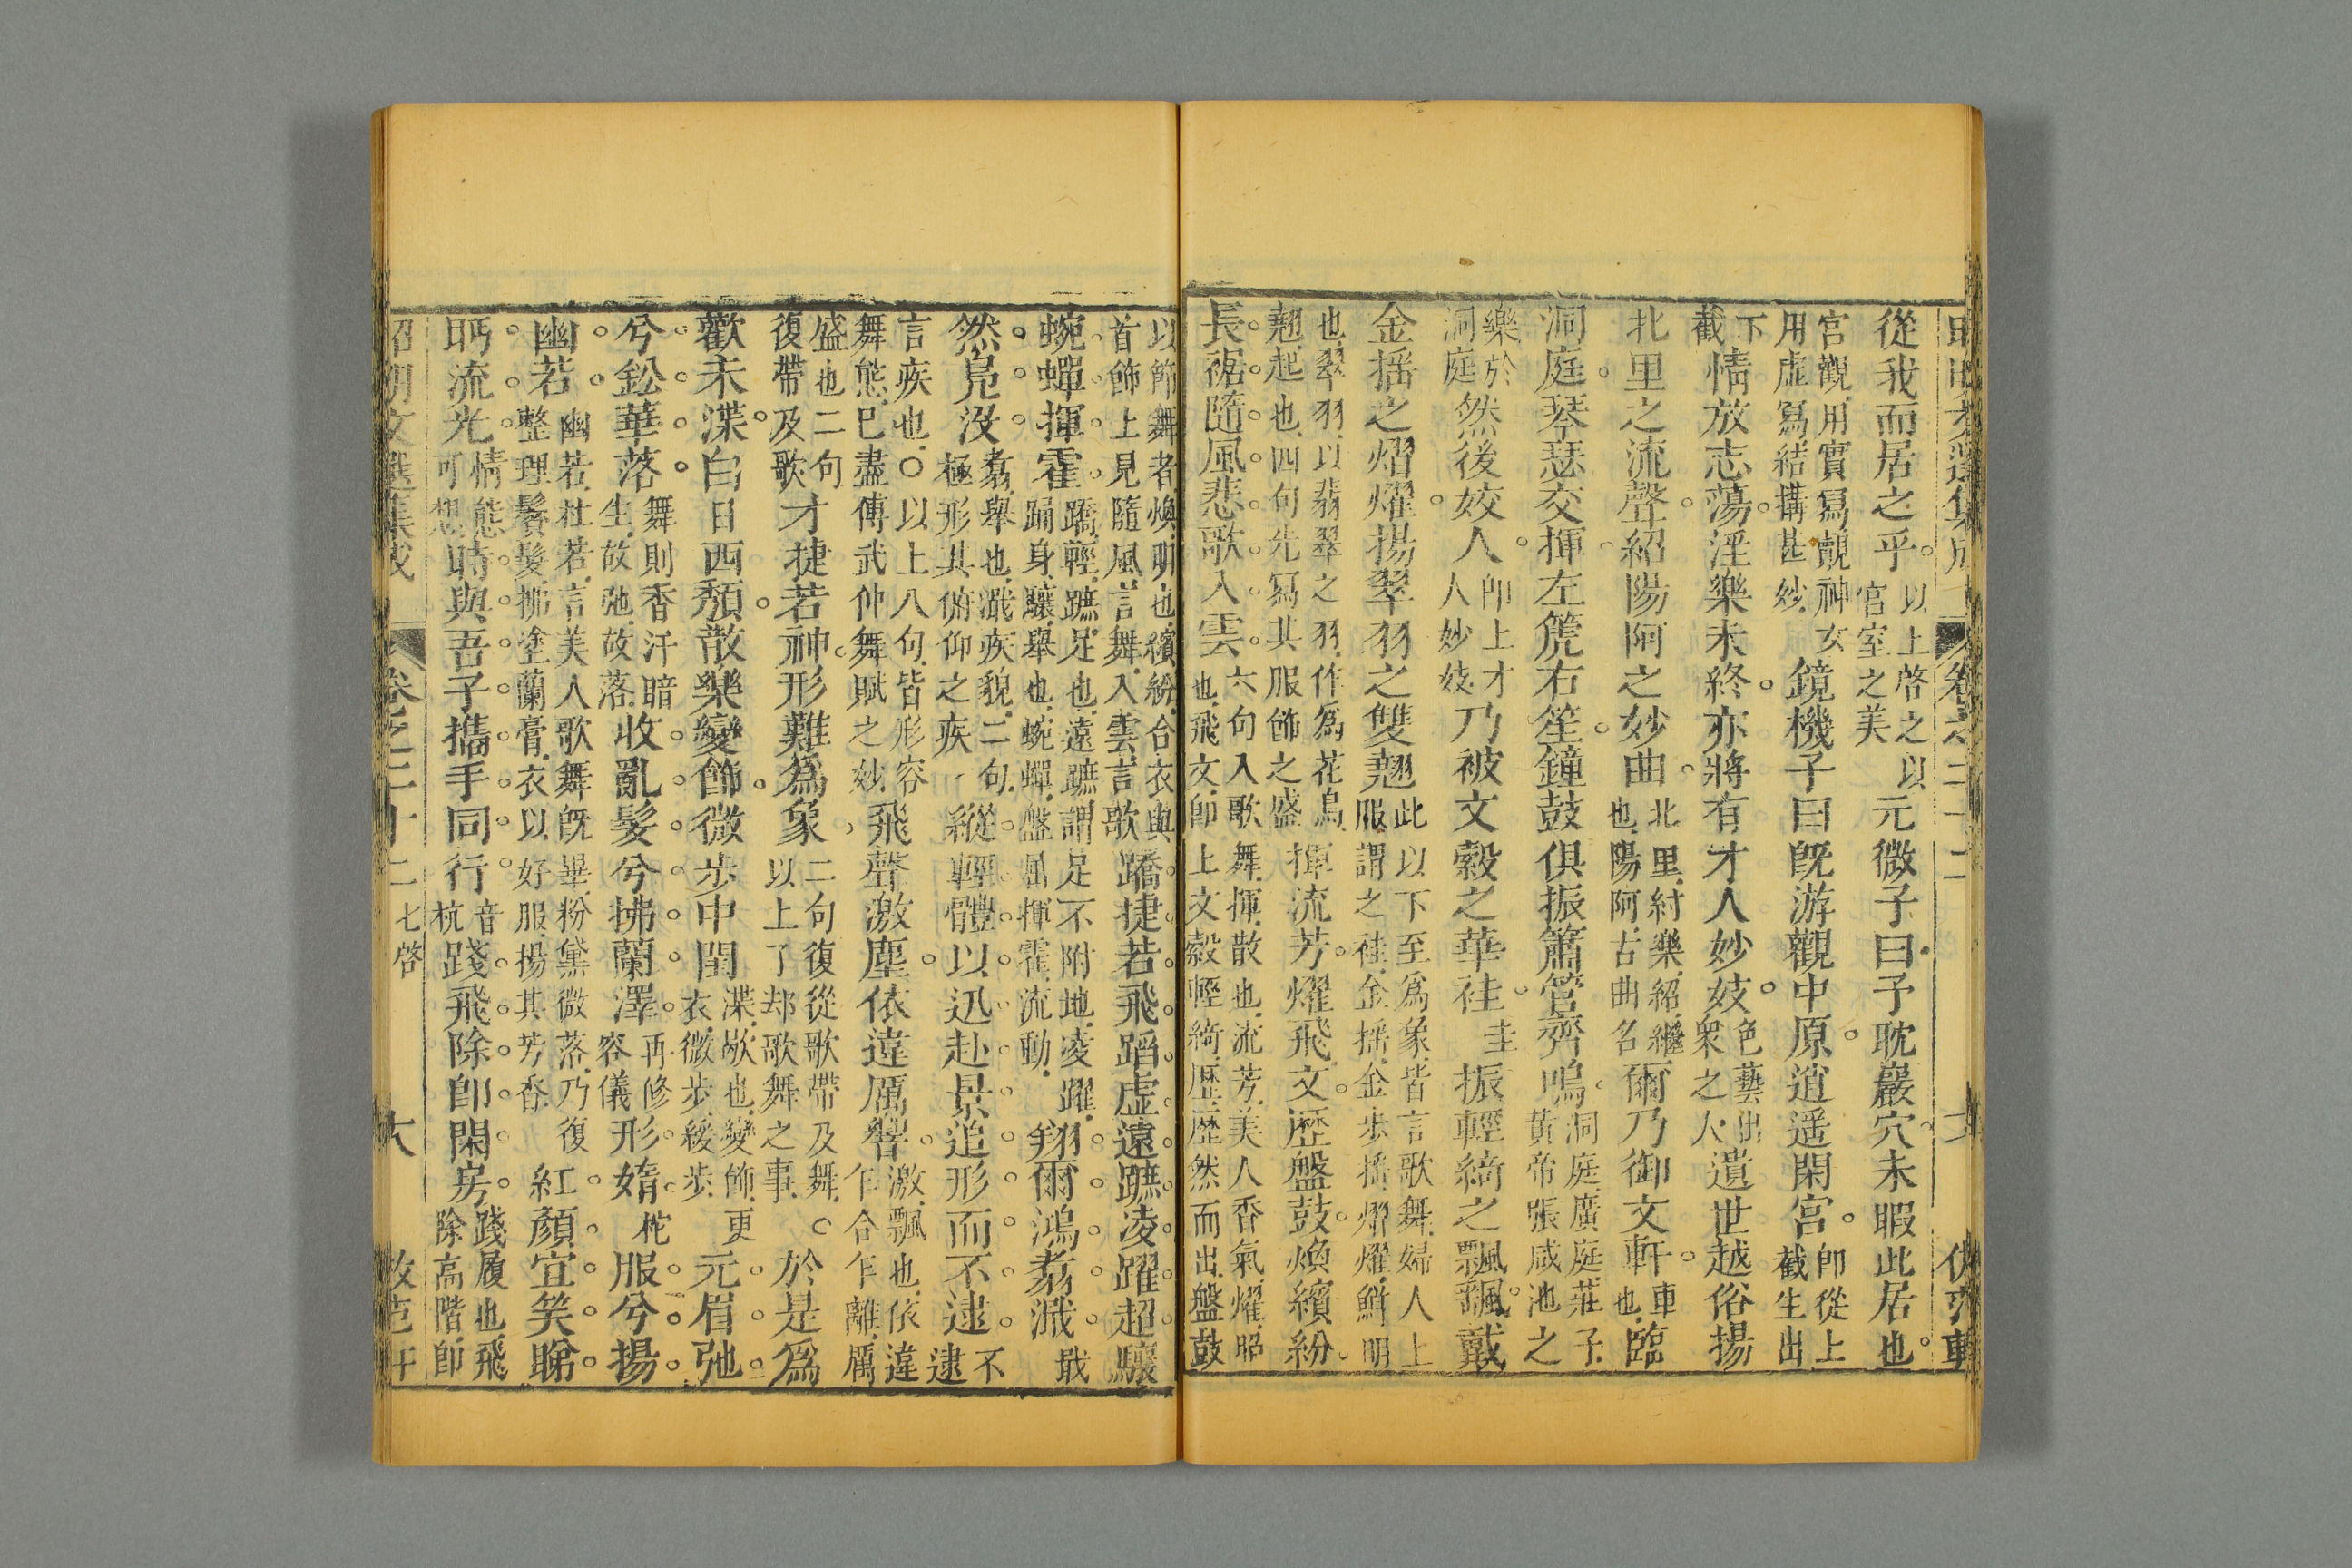 從我而居之乎以上啓之以宮室之美元微子曰予耽巖穴未暇此居也
宮觀用實寫覿神女用虛寫結搆甚妙鏡機子曰旣游觀中原逍遥閑宮卽從上截生出
下截情放志蕩淫樂未終亦將有才人妙妓色藝出衆之人遺世越俗揚
北里之流聲紹陽阿之妙曲北里紂樂紹繼也陽阿古曲名爾乃御文軒車也臨
洞庭琴瑟交揮左篪右笙鐘鼓俱振簫管齊鳴洞庭廣庭莊子黃帝張咸池之
樂於洞庭然後姣人卽上才人妙妓乃被文縠之華袿圭振輕綺之飄颻戴
金揺之熠燿揚翠羽之雙翹此以下至爲象皆言歌舞婦人上服謂之袿金揺金步揺熠燿鮮明
也翠羽以翡翠之羽作爲花鳥翹起也四句先寫其服飾之盛揮流芳燿飛文歷盤鼓煥繽紛
長裾隨風悲歌入雲六句入歌舞揮散也流芳美人香氣燿昭也飛文卽上文縠輕綺歷歷然而出盤鼓
以節舞者煥明也繽紛合衣與首飾上見隨風言舞入雲言歌蹻捷若飛蹈虛遠蹠凌躍超驤
蜿蟬揮霍蹻輕蹠足也遠蹠謂足不附地凌躍踊身驤舉也蜿蟬盤屈揮霍流動翔爾鴻翥濈戢
然鳧沒翥舉也濈疾貌二句極形其俯仰之疾縱輕體以迅赴景追形而不逮不逮
言疾也○以上八句皆形容舞態已盡傅武仲舞賦之妙飛聲激塵依違厲響激飄也依違乍合乍離厲
盛也二句復帶及歌才捷若神形難爲象二句復從歌帶及舞○以上了却歌舞之事於是爲
歡未渫白日西頽散樂變飾微步中閨渫歇也變飾更衣微步緩步元眉弛
兮鉛華落舞則香汗暗生故弛故落收亂髮兮拂蘭澤再修容儀形媠柁服兮揚
幽若幽若杜若言美人歌舞旣畢粉黛微落乃復整理鬢髮拂塗蘭膏衣以好服揚其芳香紅顏宜笑睇
眄流光情態可想時與吾子攜手同行音杭踐飛除卽閑房踐履也飛除高階卽
卷之二十二 七啓